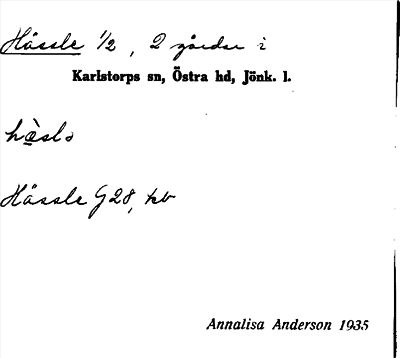 Hässle 1/2, 2 gårdar i
Karlstorps sn, Östra hd, Jönk. l.
hæ̀slə
Hässle G28, kb
Annalisa Anderson 1935